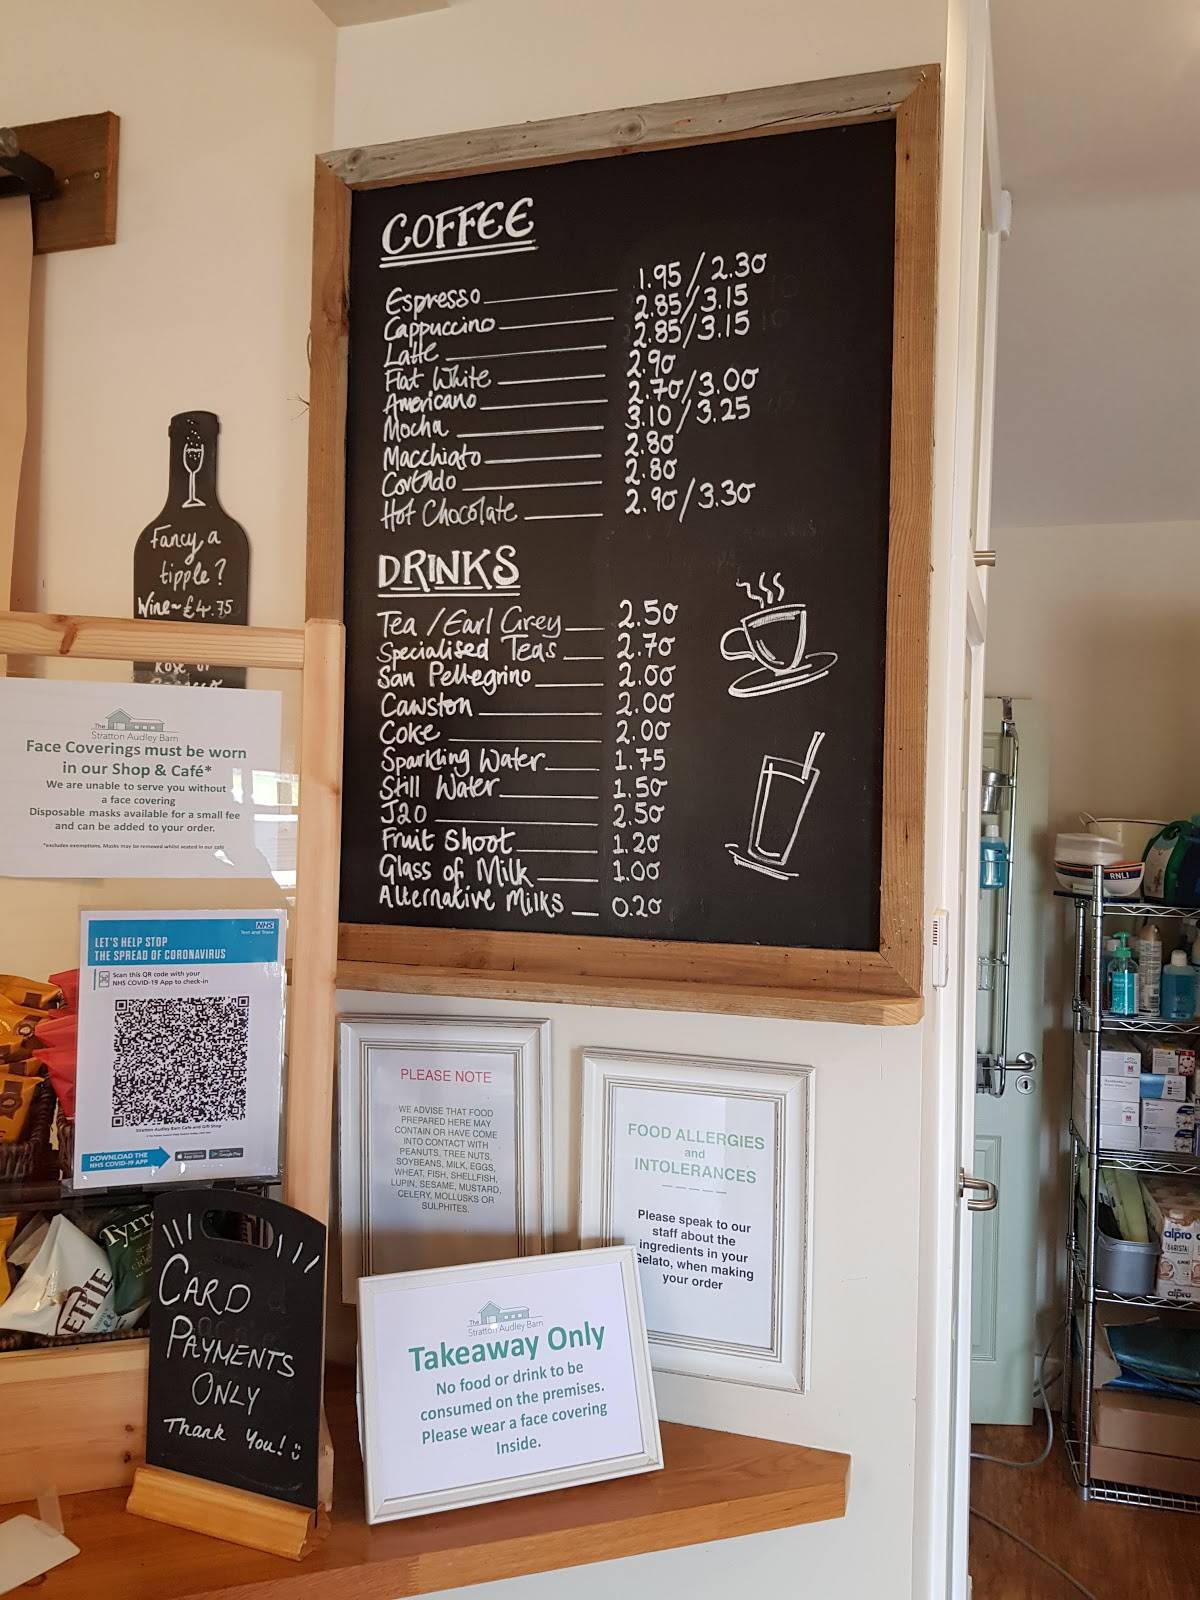 COFFEE
Espresso 1.95/2.30
Cappuccino 2.85/3.15
Latte 2.85/3.15
Flat White 2.90
Americano 2.70/3.00
Mocha 3.10/3.25
Macchiato 2.80
Cortado 2.80
Hot Chocolate 2.90/3.30
DRINKS
Tea/Earl Grey 2.50
Specialised Teas 2.70
San Pellegrino 2.00
Cawston 2.00
Coke 2.00
Sparkling Water 1.75
Still Water 1.50
J20 2.50
Fruit Shoot 1.20
Glass of Milk 1.00
Alternative Milks 0.20
Fancy a
tipple?
Wine~£4.75
Rosé or
The
Stratton Audley Barn
Face Coverings must be worn
in our Shop & Café*
We are unable to serve you without
a face covering
Disposable masks available for a small fee
and can be added to your order.
*excludes exemptions. Masks may be removed whilst seated in our café
NHS
Test and Trace
LET'S HELP STOP
THE SPREAD OF CORONAVIRUS
Scan this QR code with your
NHS COVID-19 App to check-in
Stratton Audley Barn Cafe and Gift Shop
DOWNLOAD THE
NHS COVID-19 APP
App Store
Google Play
PLEASE NOTE
WE ADVISE THAT FOOD
PREPARED HERE MAY
CONTAIN OR HAVE COME
INTO CONTACT WITH
PEANUTS, TREE NUTS,
SOYBEANS, MILK, EGGS,
WHEAT, FISH, SHELLFISH,
LUPIN, SESAME, MUSTARD,
CELERY, MOLLUSKS OR
SULPHITES.
FOOD ALLERGIES
and
INTOLERANCES
_ _ _ _ _
Please speak to our
staff about the
ingredients in your
Gelato, when making
your order
CARD
PAYMENTS
ONLY
Thank You!
The
Stratton Audley Barn
Takeaway Only
No food or drink to be
consumed on the premises.
Please wear a face covering
Inside.
Tyrr
ETTLE
RNLI
alpro
BARISTA
alpro